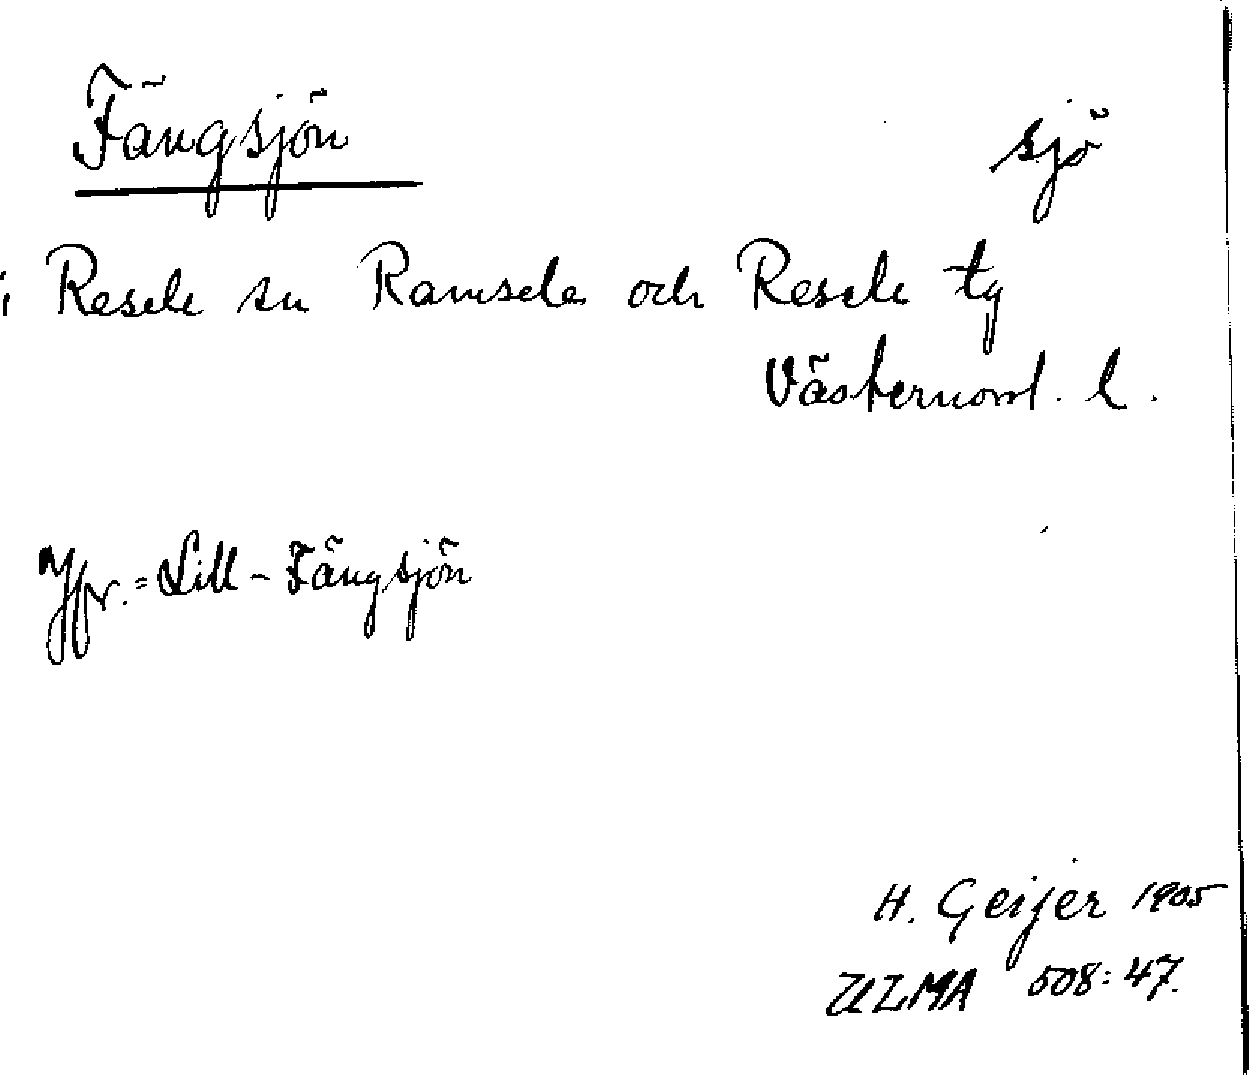 Fängsjön sjö
i Resele sn Ramsele och Resele tg
Västernorrl. l.
Jfr. = Lill-Fängsjön
H. Geijer 1905
ULMA 508:47.